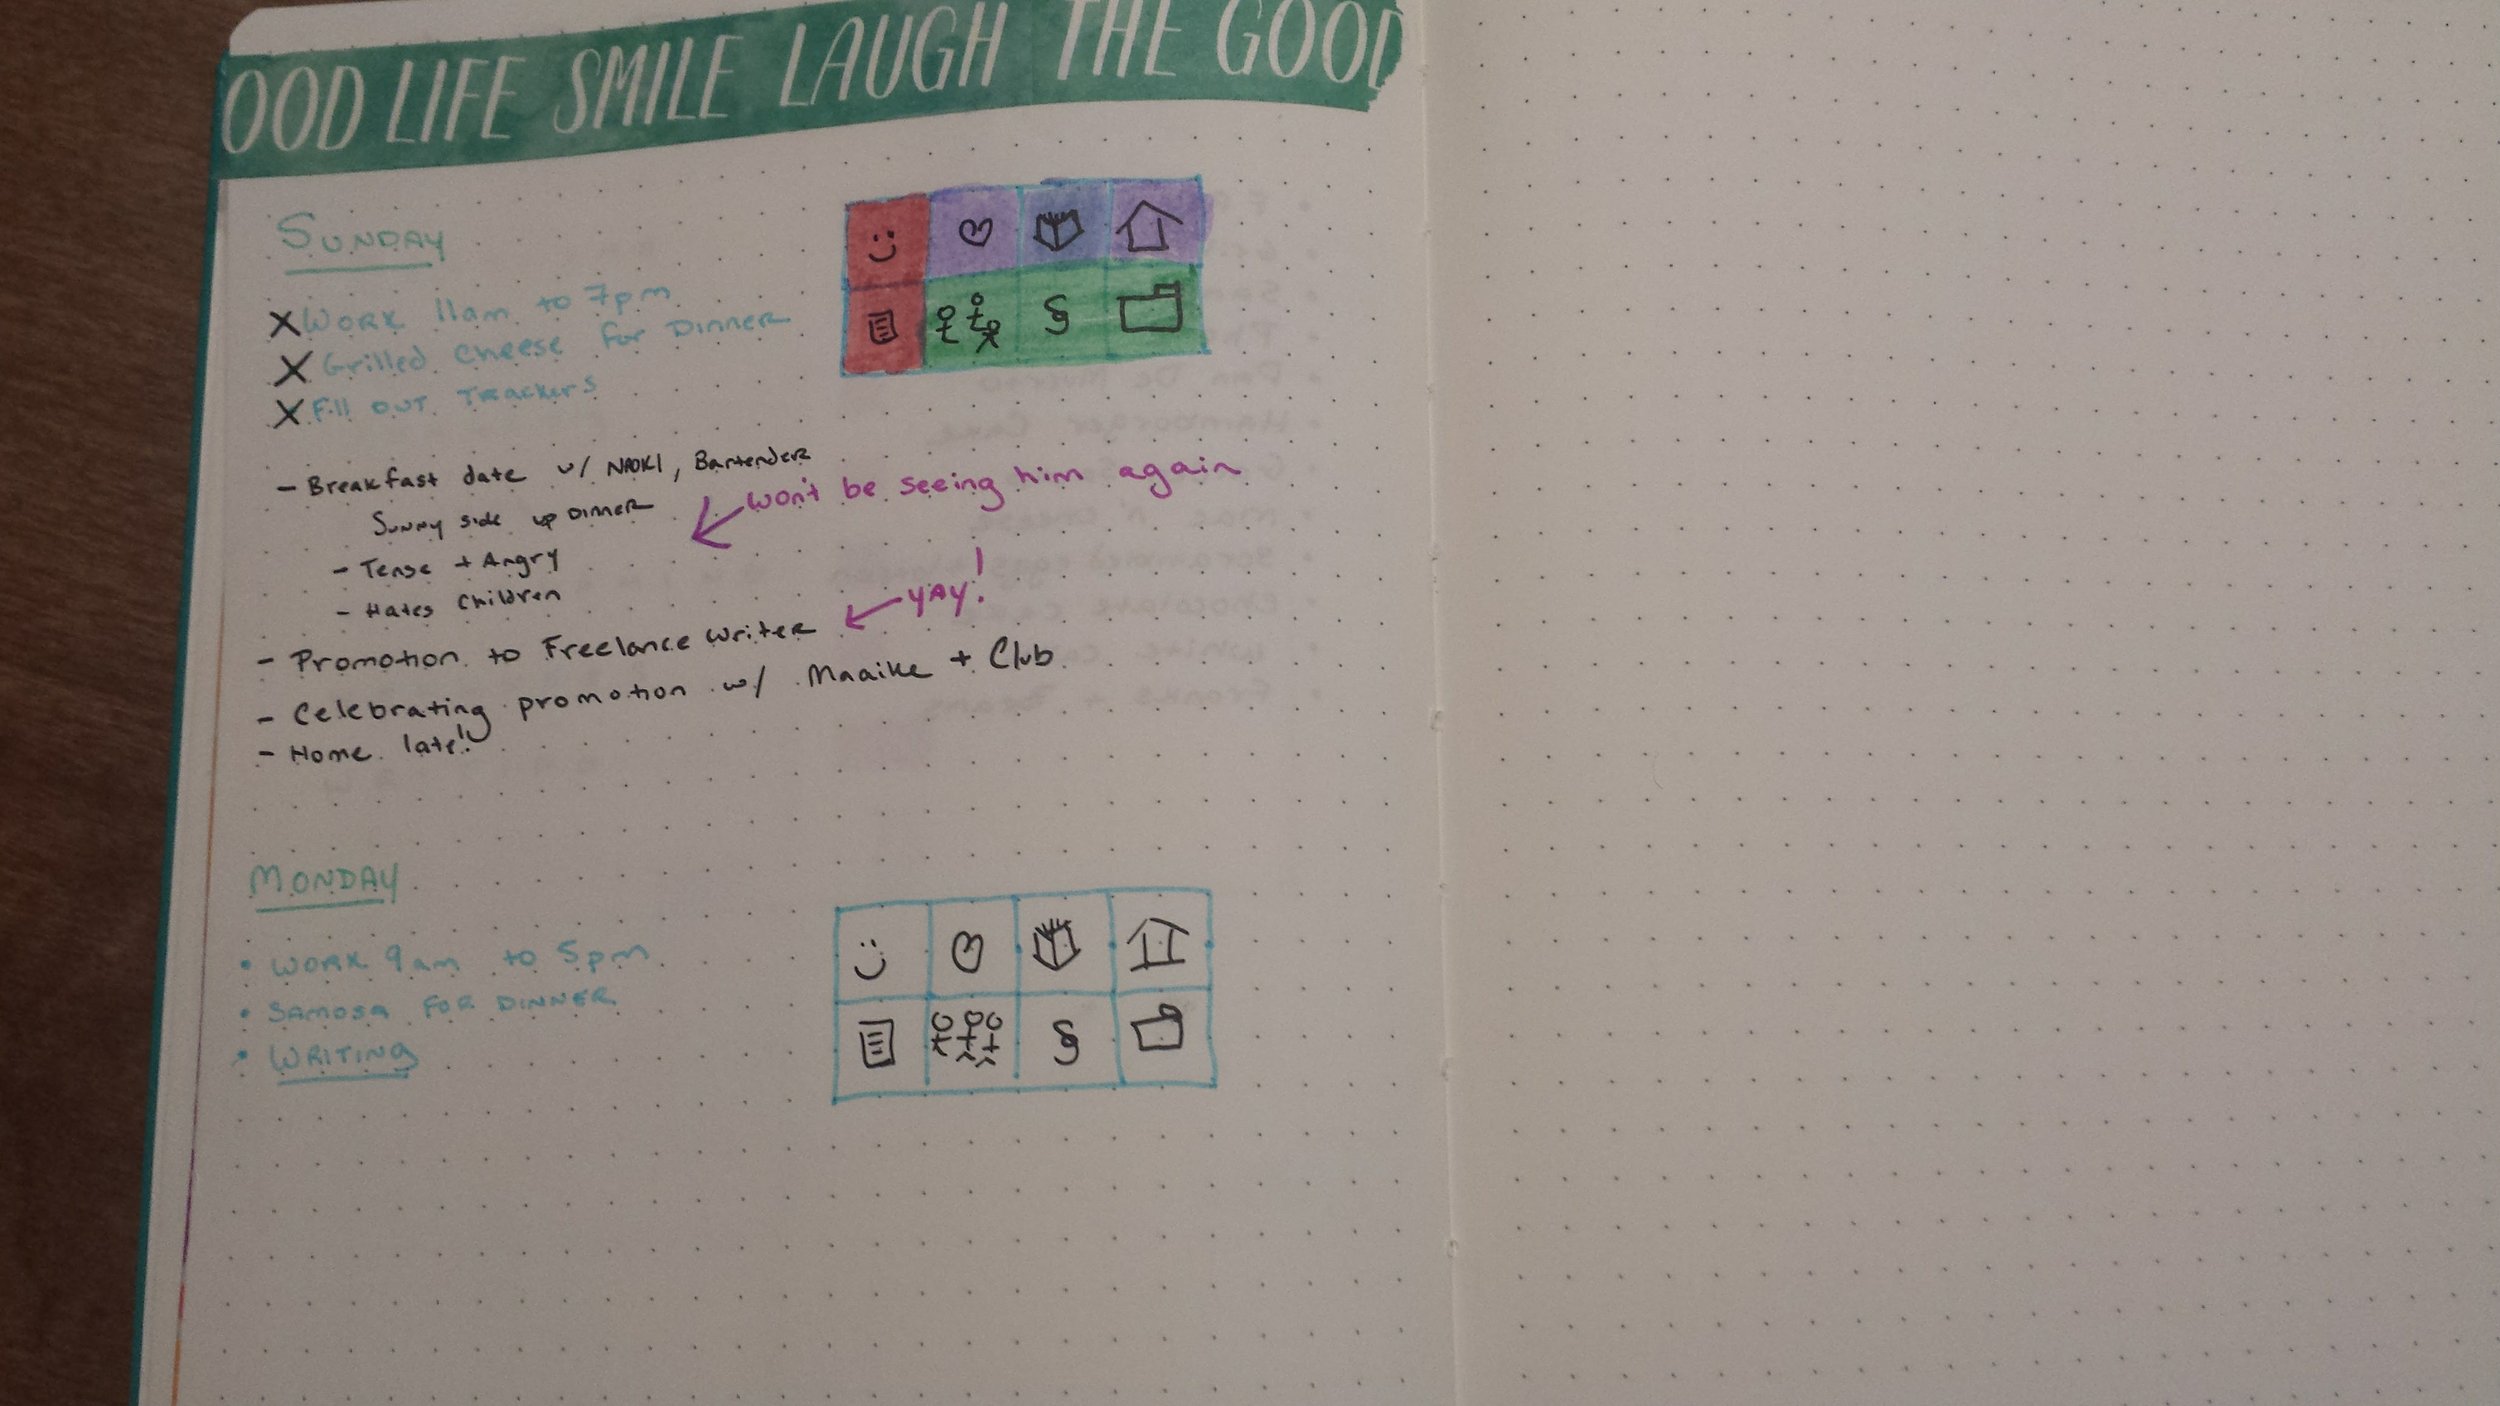 OOD LIFE SMILE LAUGH THE GOOD
SUNDAY
X Work 11am to 7pm
X Grilled Cheese for Dinner
X Fill out Trackers
- Breakfast date w/ NAOKI, Bartender
Sunny side up Dinner
won't be seeing him again
- Tense + Angry
- Hates Children
- Promotion to Freelance Writer
YAY!
- Celebrating promotion w/ Maaike + Club
- Home late!
MONDAY
• WORK 9am to 5pm
• SAMOSA FOR DINNER
• WRITING